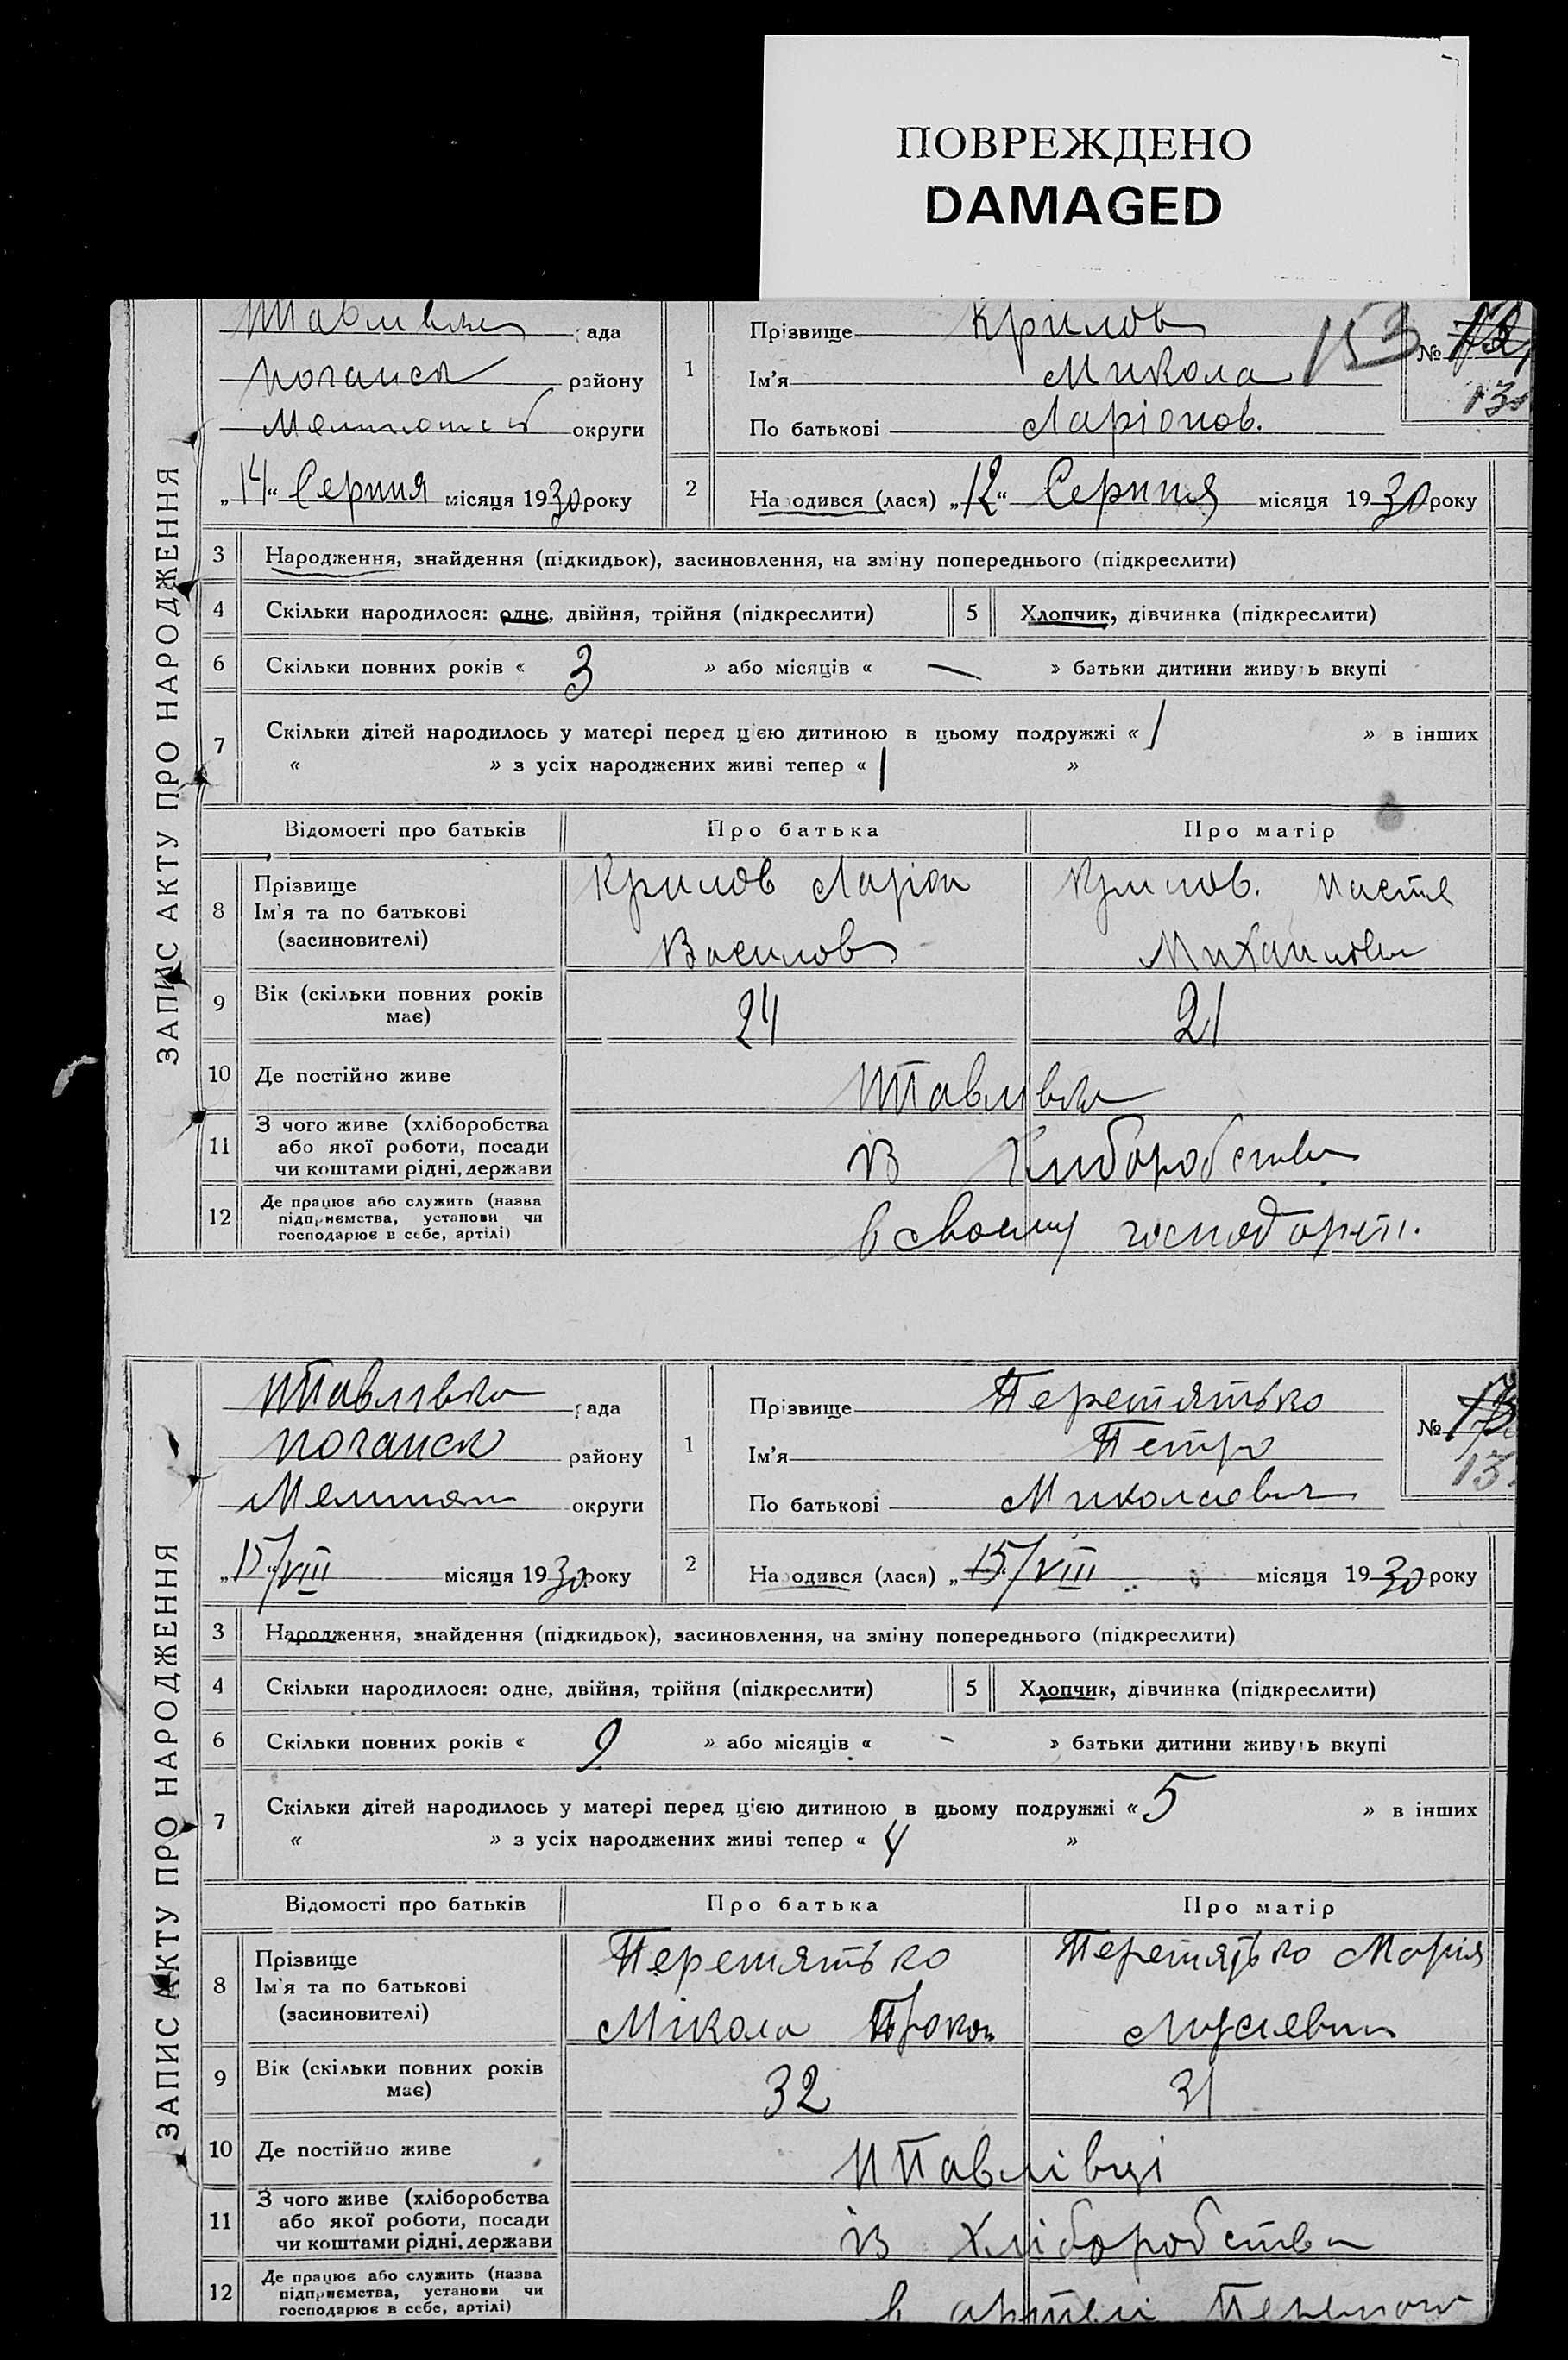 ПОВРЕЖДЕНО
DAMAGED
ЗАПИС АКТУ ПРО НАРОДЖЕННЯ
рада
району
округи
„14“ Серпня місяця 1930 року
1 Прізвище Крилов
Ім'я Микола
По батькові Ларіонов.
153
№
2 Народився (лася) „12“ Серпня місяця 1930 року
3 Народження, знайдення (підкидьок), засиновлення, на зміну попереднього (підкреслити)
4 Скільки народилося: одне, двійня, трійня (підкреслити) 5 Хлопчик, дівчинка (підкреслити)
6 Скільки повних років « 3 » або місяців « — » батьки дитини живуть вкупі
7 Скільки дітей народилось у матері перед цією дитиною в цьому подружжі « 1 » в інших
« » з усіх народжених живі тепер « 1 »
Відомості про батьків Про батька Про матір
8 Прізвище
Ім'я та по батькові
(засиновителі)
Крилов Ларіон
Василов
Крилов.
9 Вік (скільки повних років
має)
24 21
10 Де постійно живе
11 З чого живе (хліборобства
або якої роботи, посади
чи коштами рідні, держави
12 Де працює або служить (назва
підприємства, установи чи
господарює в себе, артілі)
в своему господарст.
ЗАПИС АКТУ ПРО НАРОДЖЕННЯ
рада
району
округи
„15“/VIII місяця 1930 року
1 Прізвище Перетятько
Ім'я Петро
По батькові Миколаевич
№
2 Народився (лася) „15“/VIII місяця 1930 року
3 Народження, знайдення (підкидьок), засиновлення, на зміну попереднього (підкреслити)
4 Скільки народилося: одне, двійня, трійня (підкреслити) 5 Хлопчик, дівчинка (підкреслити)
6 Скільки повних років « 9 » або місяців « - » батьки дитини живуть вкупі
7 Скільки дітей народилось у матері перед цією дитиною в цьому подружжі « 5 » в інших
« » з усіх народжених живі тепер « 4 »
Відомості про батьків Про батька Про матір
8 Прізвище
Ім'я та по батькові
(засиновителі)
Перетятько
Мікола Прокоп
Перетятько Марія
9 Вік (скільки повних років
має)
32 31
10 Де постійно живе
11 З чого живе (хліборобства
або якої роботи, посади
чи коштами рідні, держави
із Хліборобства
12 Де працює або служить (назва
підприємства, установи чи
господарює в себе, артілі)
в артелі